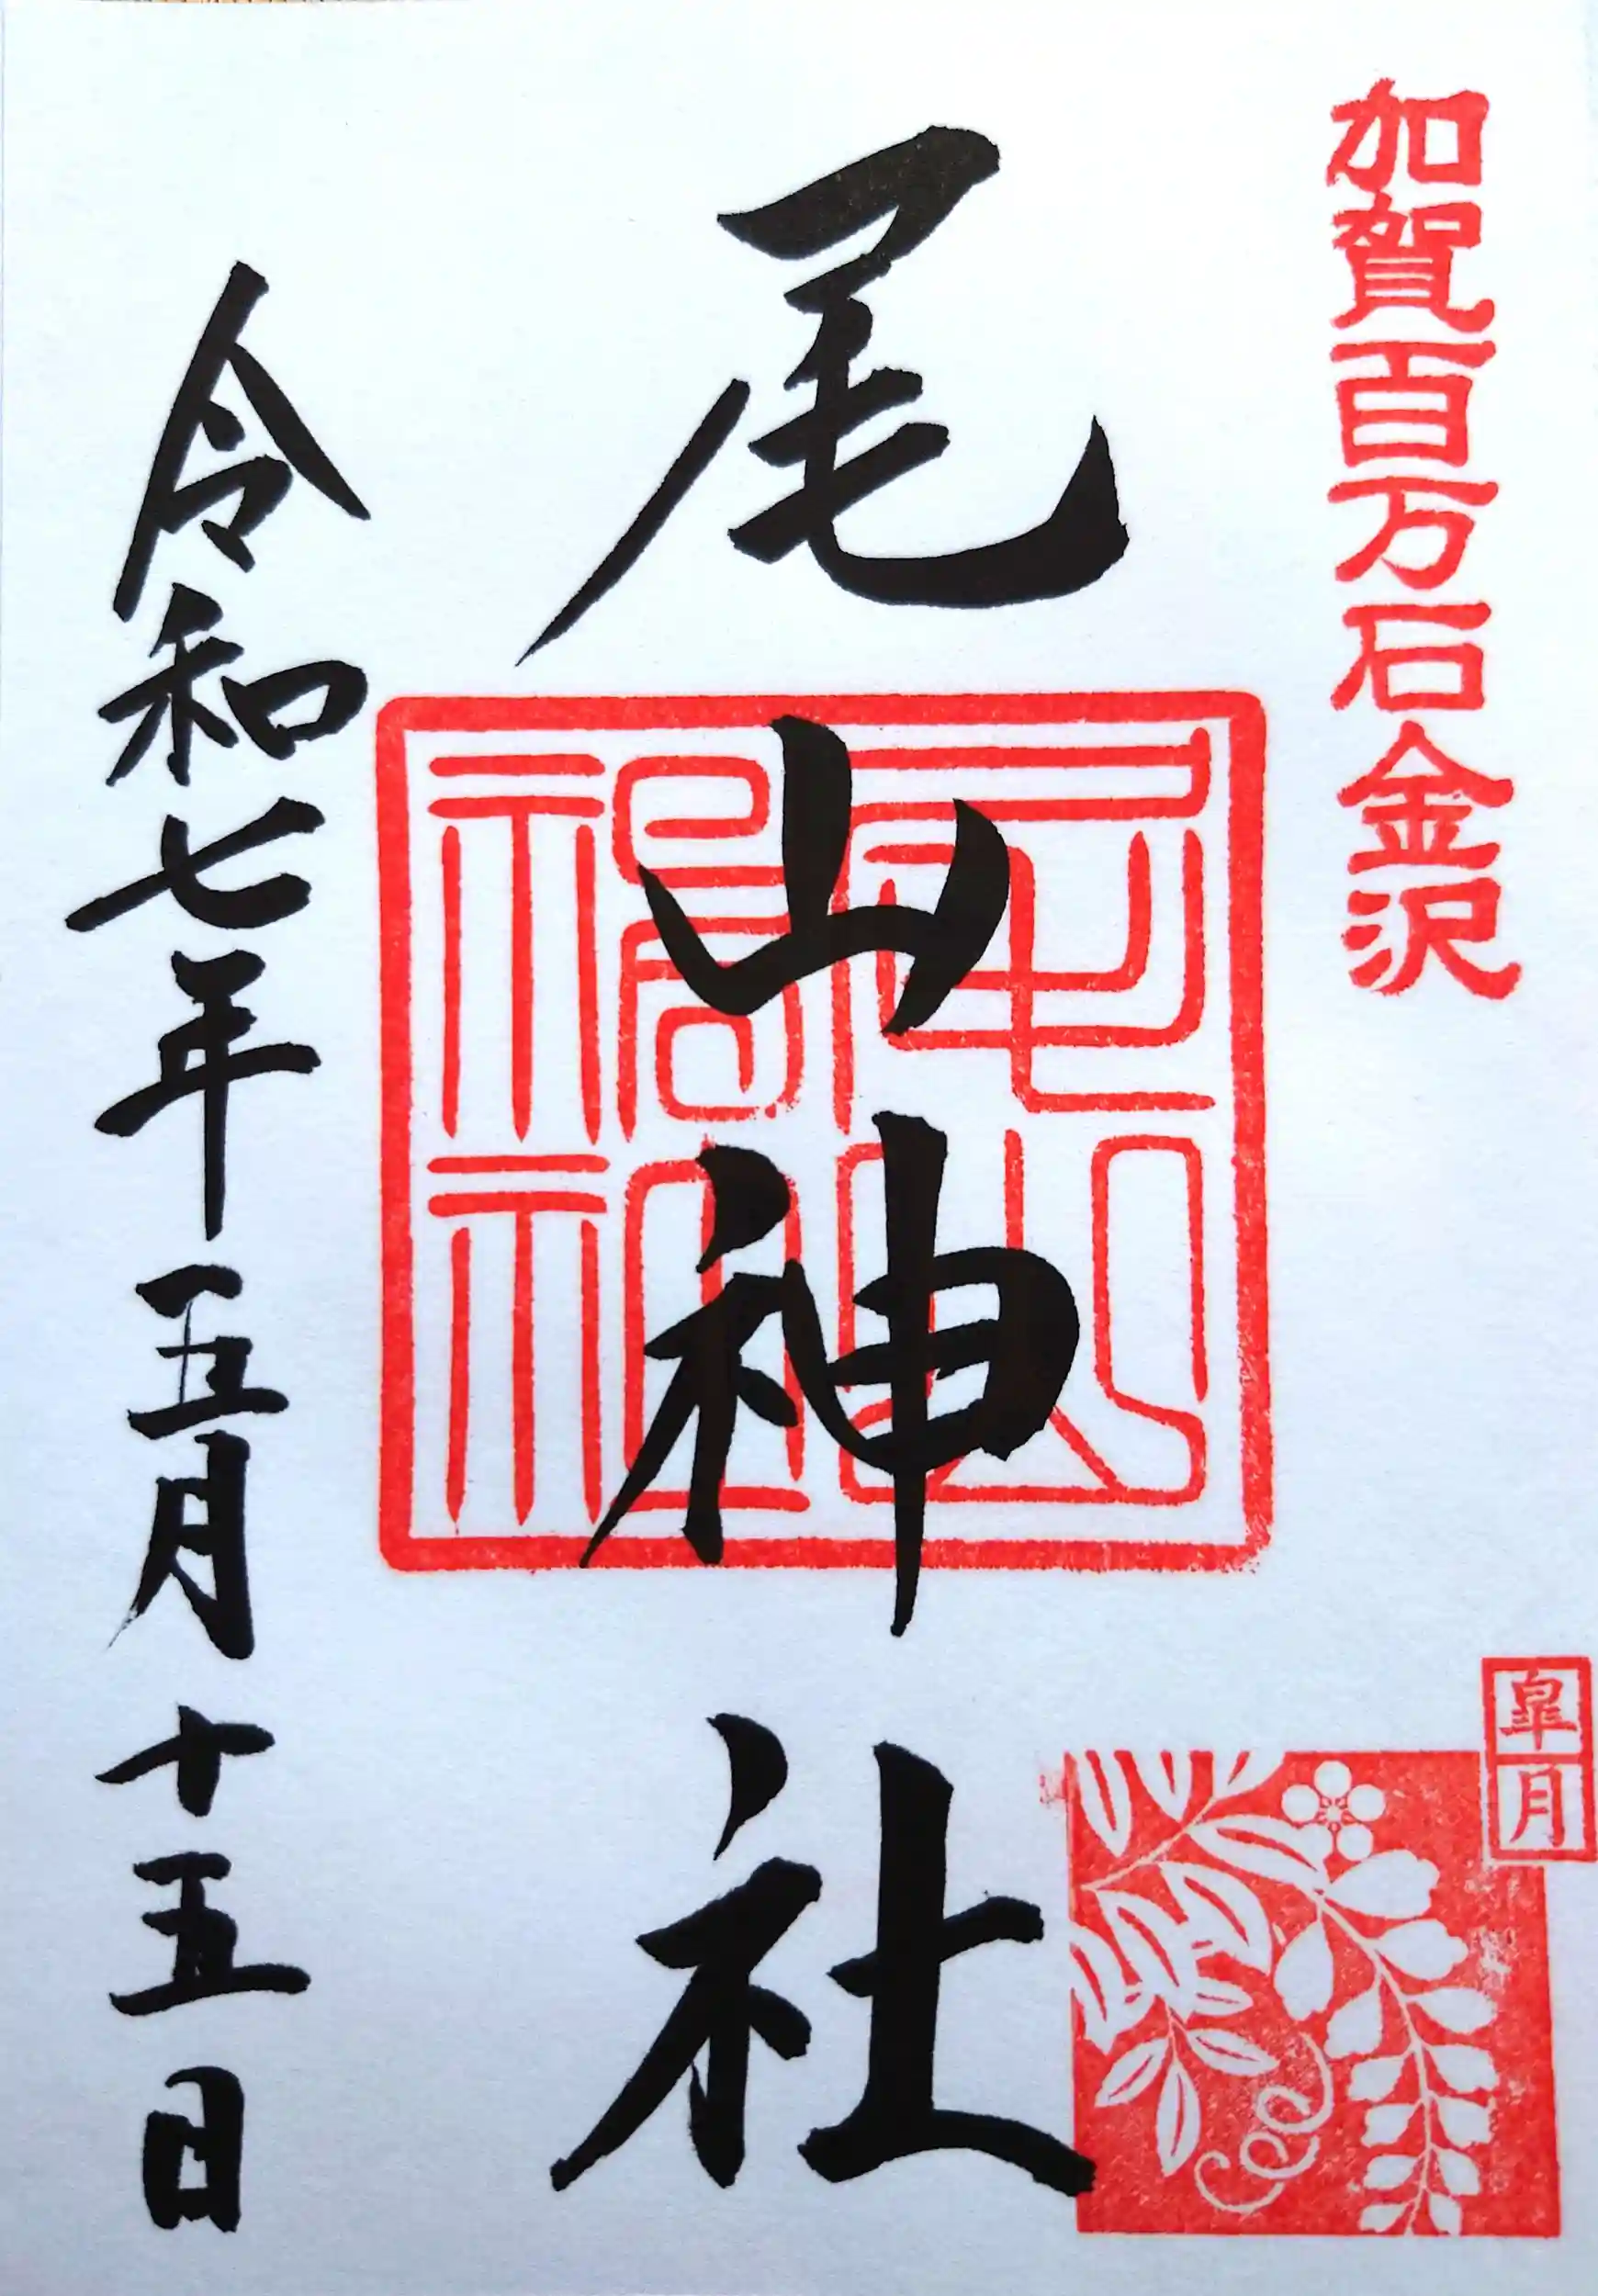 加賀百万石金沢
皐月
尾山神社
尾山
神社
令和七年五月十五日